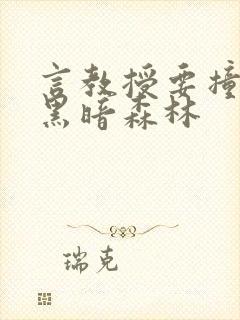 言教授要撞
黑暗森林
瑞克